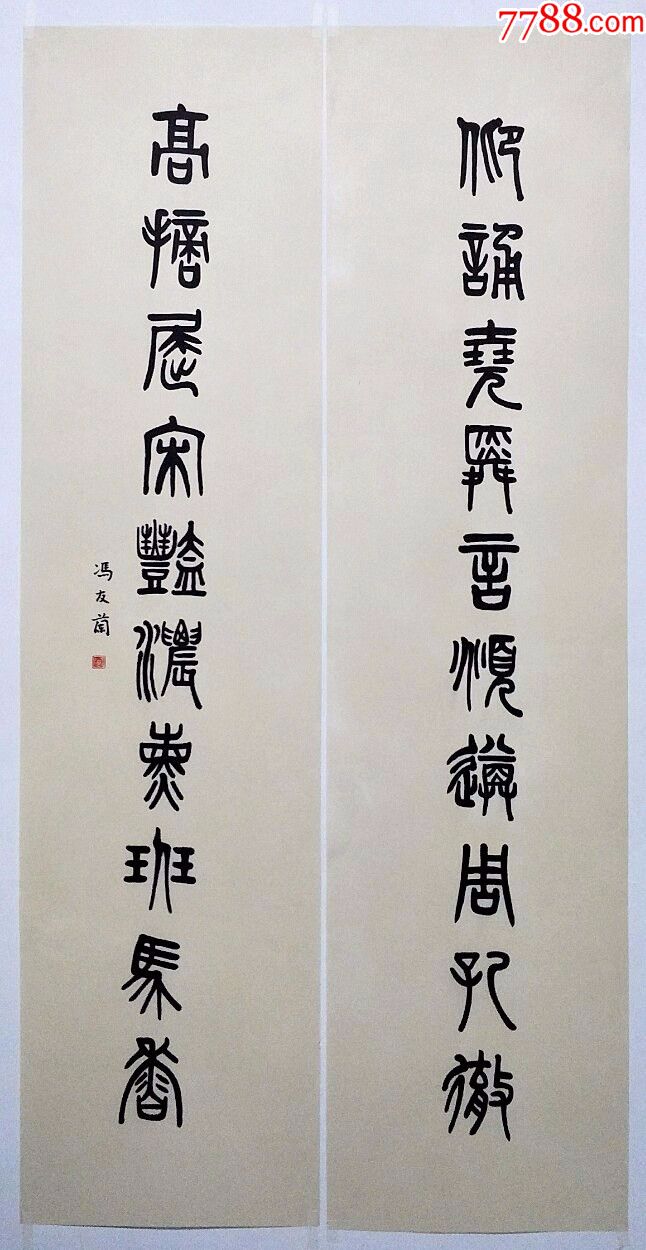 7788.com
仰誦堯舜言頫遵周孔徹
高摘屈宋豔濃熏班馬香
馮友蘭